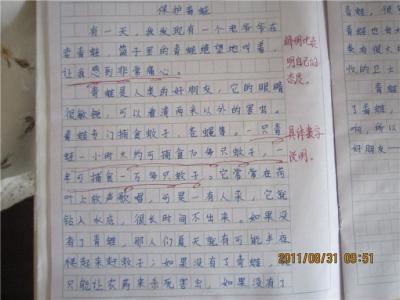 保护青蛙
有一天，我发现有一个老爷爷在
卖青蛙，笼子里的青蛙绝望地叫着，
让我感到非常痛心。
青蛙是人类的好朋友，它的眼睛
很敏锐，可以看清两米以外的害虫。
青蛙专门捕食蚊子、苍蝇等。一只青
蛙一小时大约可捕食70每只蚊子，一
年可捕食一万每只蚊子。它常常在荷
叶上放声歌唱，可是一有人来，它就
钻入水底，很长时间不出来。如果没
有了青蛙，那人们夏天就有可能半夜
爬起来打蚊子；如果没有了青蛙，
只能让农药来杀死害虫。如果没有了
鲜明地表
明自己的
态度。
具体数字
说明。
青蛙
了青蛙
好朋友
2011/08/31 09:51